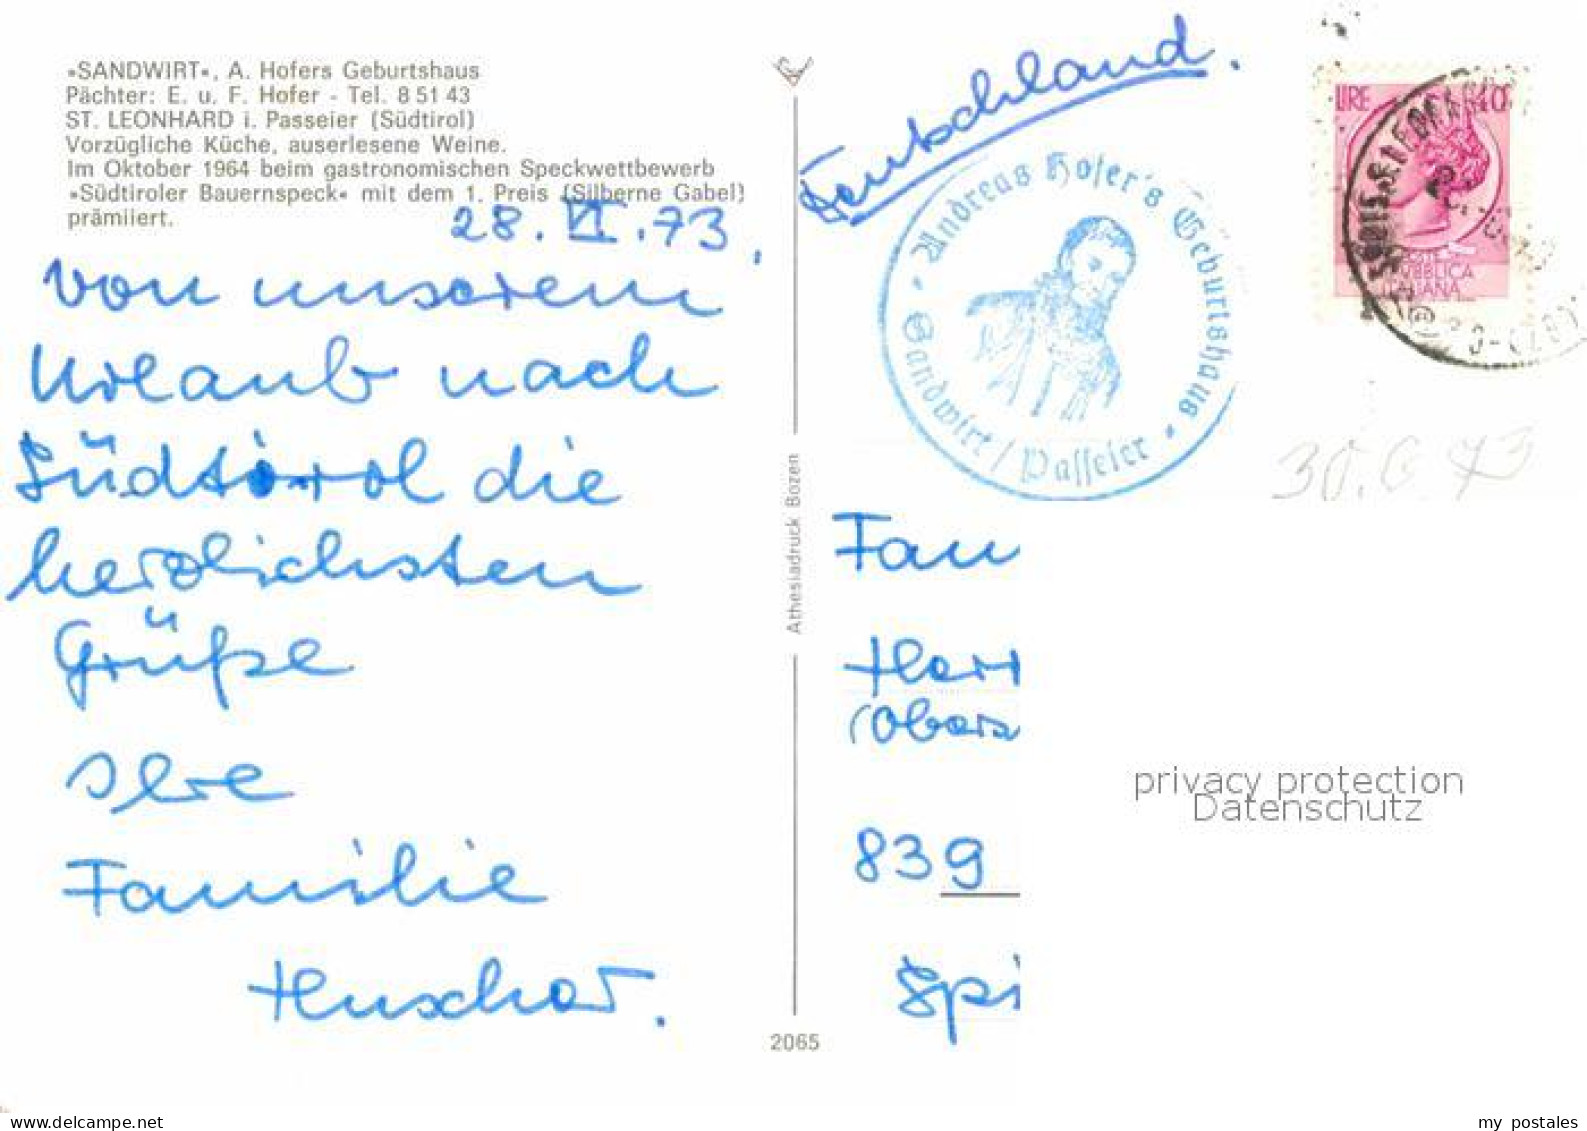 »SANDWIRT«, A. Hofers Geburtshaus
Pächter: E. u. F. Hofer - Tel. 8 51 43
ST. LEONHARD i. Passeier (Südtirol)
Vorzügliche Küche, auserlesene Weine.
Im Oktober 1964 beim gastronomischen Speckwettbewerb
»Südtiroler Bauernspeck« mit dem 1. Preis (Silberne Gabel)
prämiiert.
28. VI. 73.
von unserem
Urlaub nach
Südtirol die
herzlichsten
Grüße
Ihre
Familie
Huschar.
Athesiadruck Bozen
2065
Deutschland.
Andreas Hofer's Geburtshaus
Sandwirt / Passeier
LIRE 40
POSTE
REPUBBLICA
ITALIANA
30.6.73
Fam
Herr
(Obers
839
Spi
privacy protection
Datenschutz
www.delcampe.net
my postales